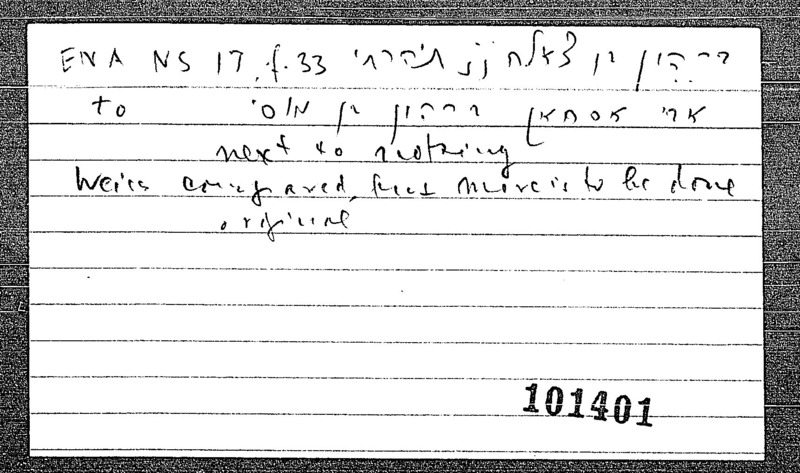 ENA NS 17, f. 33 ברהון בן צאלח תאהרתי
to אבי אסחאק ברהון בן מוסי
next to nothing
Weiss compared, but more is to be done
original
101401